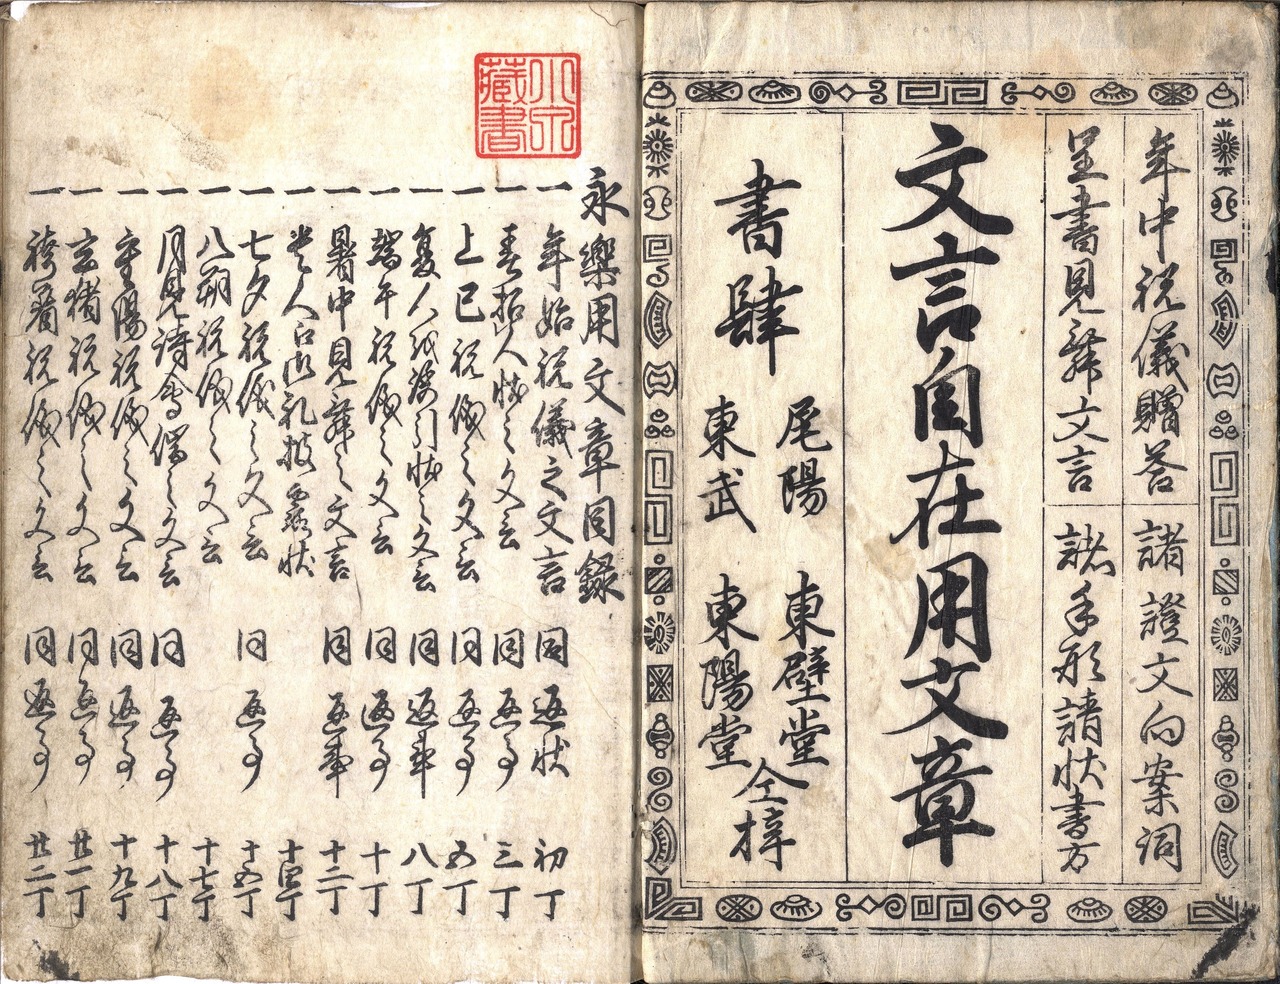 年中祝儀贈答 諸證文向案詞
呈書見舞文言 諸手形請状書方
文言自在用文章
書肆
尾陽 東壁堂
東武 東陽堂
仝梓
小
藏書
永樂用文章目録
一 年始祝儀之文言 同返状 初丁
一 春 人 状之文言 同返事 三丁
一 上巳祝儀之文言 同返事 五丁
一 状之文言 同返事 八丁
一 端午祝儀之文言 同返事 十丁
一 暑中見舞之文言 同返事 十二丁
一 人 御礼披露状 十四丁
一 七夕祝儀之文言 同返事 十五丁
一 八朔祝儀之文言 十七丁
一 月見詩 之文言 同返事 十八丁
一 重陽祝儀之文言 同返事 十九丁
一 玄猪祝儀之文言 同返事 廿一丁
一 袴着祝儀之文言 同返事 廿二丁